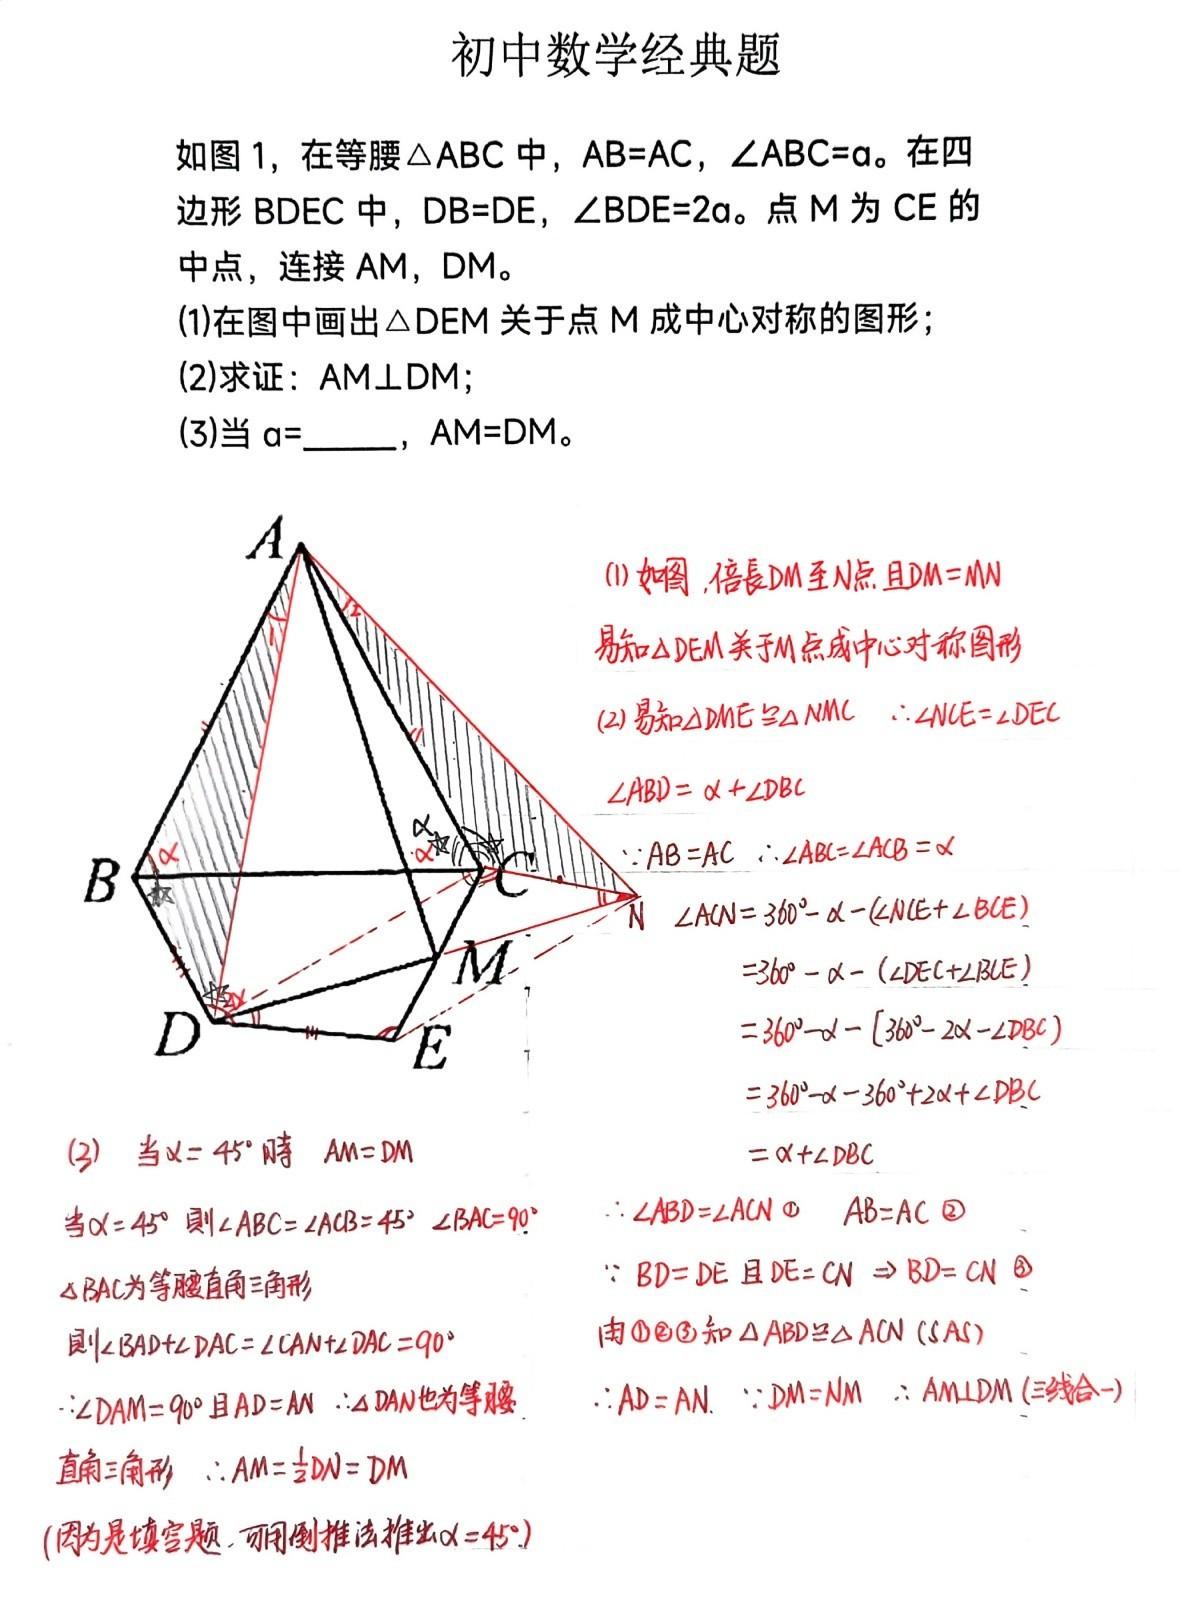 初中数学经典题
如图1，在等腰△ABC中，AB=AC，∠ABC=α。在四
边形BDEC中，DB=DE，∠BDE=2α。点M为CE的
中点，连接AM，DM。
(1)在图中画出△DEM关于点M成中心对称的图形；
(2)求证：AM⊥DM；
(3)当α=_____，AM=DM。
A
B
C
D
E
M
N
α
α
α
2α
(1) 如图，倍長DM至N点且DM=MN
易知△DEM关于M点成中心对称图形
(2) 易知△DME≌△NMC ∴∠NCE=∠DEC
∠ABD= α+∠DBC
∵AB=AC ∴∠ABC=∠ACB=α
∠ACN=360°-α-(∠NCE+∠BCE)
=360°-α-(∠DEC+∠BCE)
=360°-α-[360°-2α-∠DBC)
=360°-α-360°+2α+∠DBC
=α+∠DBC
∴∠ABD=∠ACN① AB=AC②
∵ BD=DE且DE=CN ⇒ BD=CN③
由①②③知△ABD≌△ACN (SAS)
∴AD=AN. ∵DM=NM ∴AM⊥DM(三线合一)
(3) 当α=45°時 AM=DM
当α=45° 則∠ABC=∠ACB=45° ∠BAC=90°
△BAC为等腰直角三角形
則∠BAD+∠DAC=∠CAN+∠DAC=90°
∴∠DAM=90°且AD=AN ∴△DAN也为等腰
直角三角形 ∴AM=½DN=DM
(因为是填空题，可用倒推法推出α=45°)